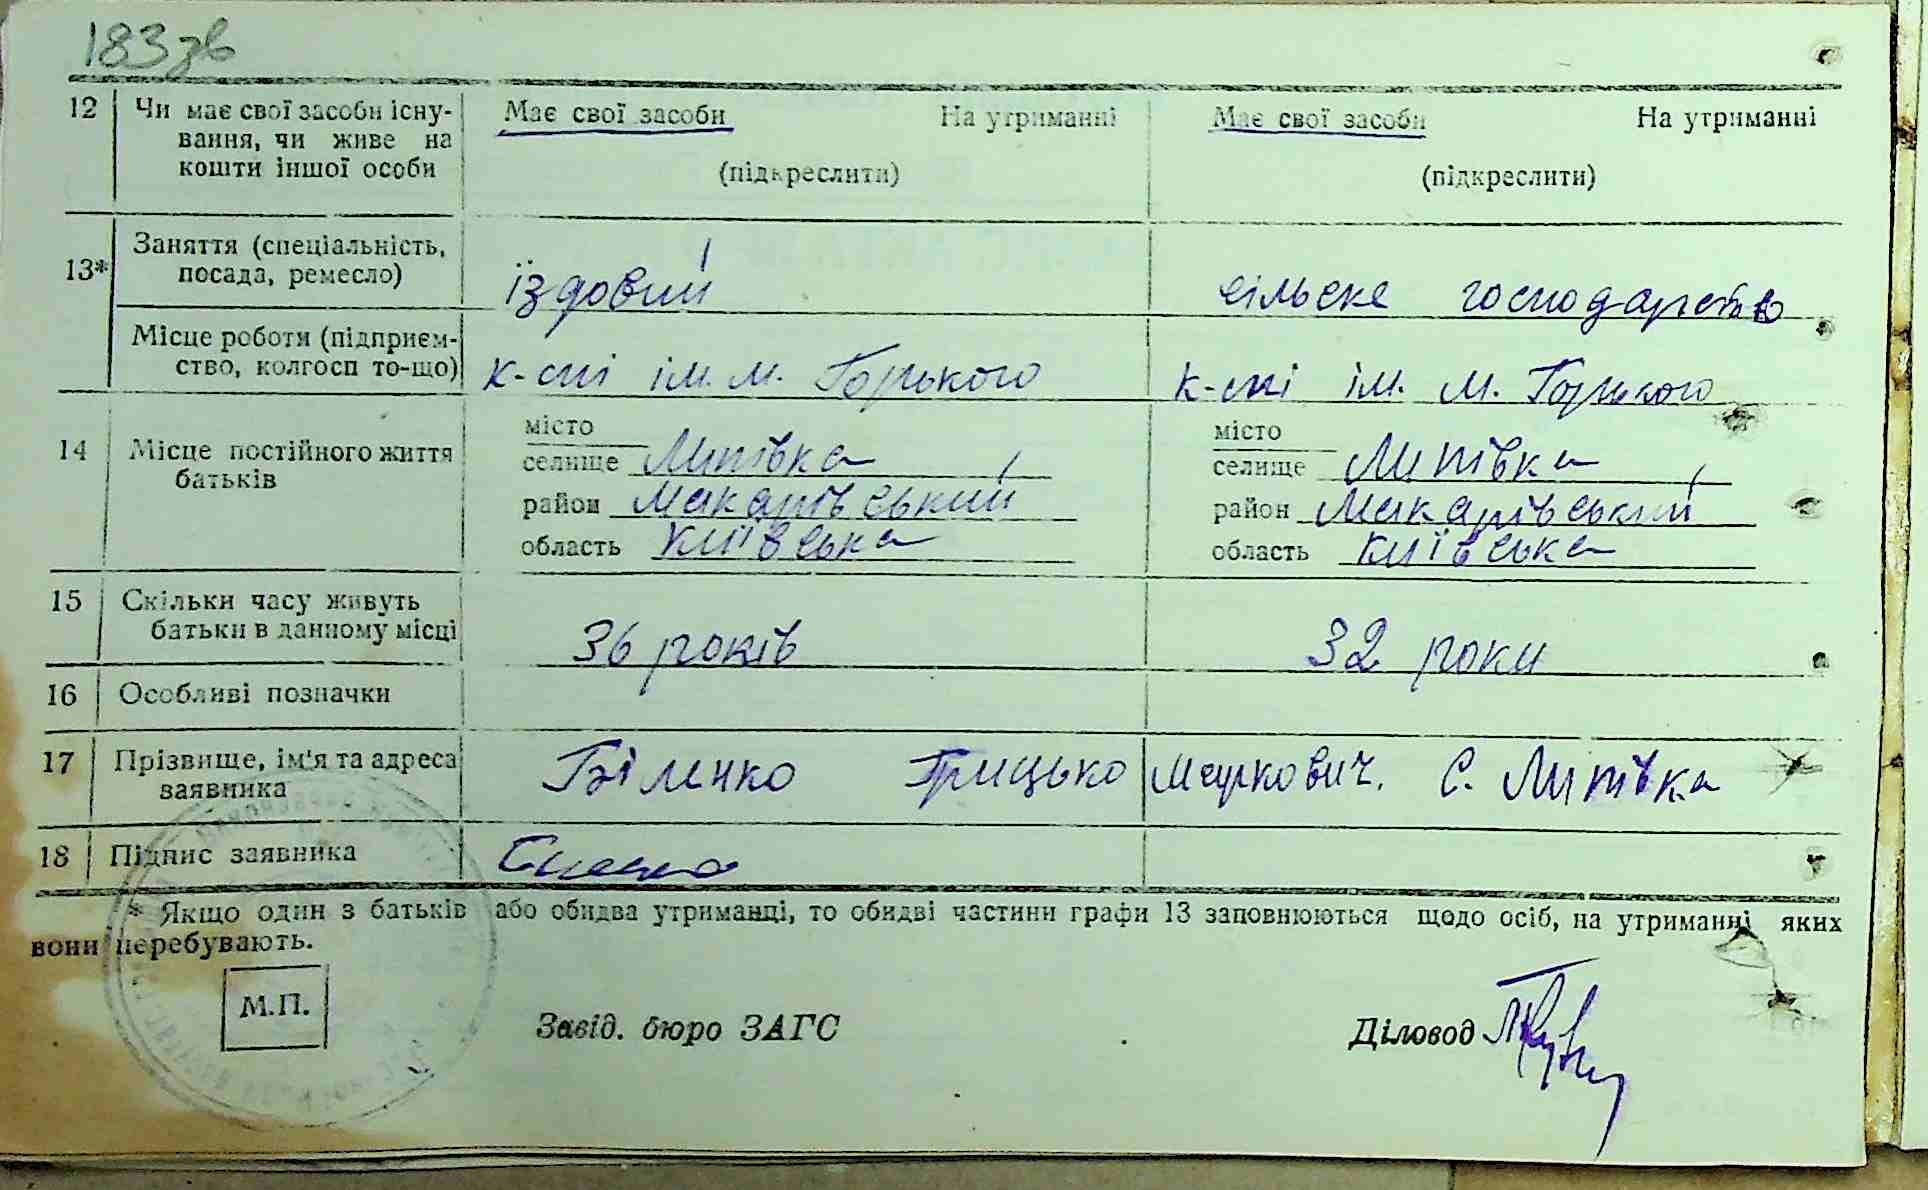 183зв
12 Чи має свої засоби існу- Має свої засоби На утриманні Має свої засоби На утриманні
вання, чи живе на
кошти іншої особи (підкреслити) (підкреслити)
13* Заняття (спеціальність,
посада, ремесло) їздовий сільске господарство
Місце роботи (підприєм-
ство, колгосп то-що) к-спі ім. м. Горького к-спі ім. М. Горького
14 Місце постійного життя
батьків
місто місто
селище Липівка селище Липівка
район Макарівський район Макарівський
область Київська область Київська
15 Скільки часу живуть
батьки в данному місці 36 років 32 роки
16 Особливі позначки
17 Прізвище, ім'я та адреса
заявника Грицько Маркович. С. Липівка
18 Підпис заявника
* Якщо один з батьків або обидва утриманці, то обидві частини графи 13 заповнюються щодо осіб, на утриманні яких
вони перебувають.
М.П. Завід. бюро ЗАГС Діловод